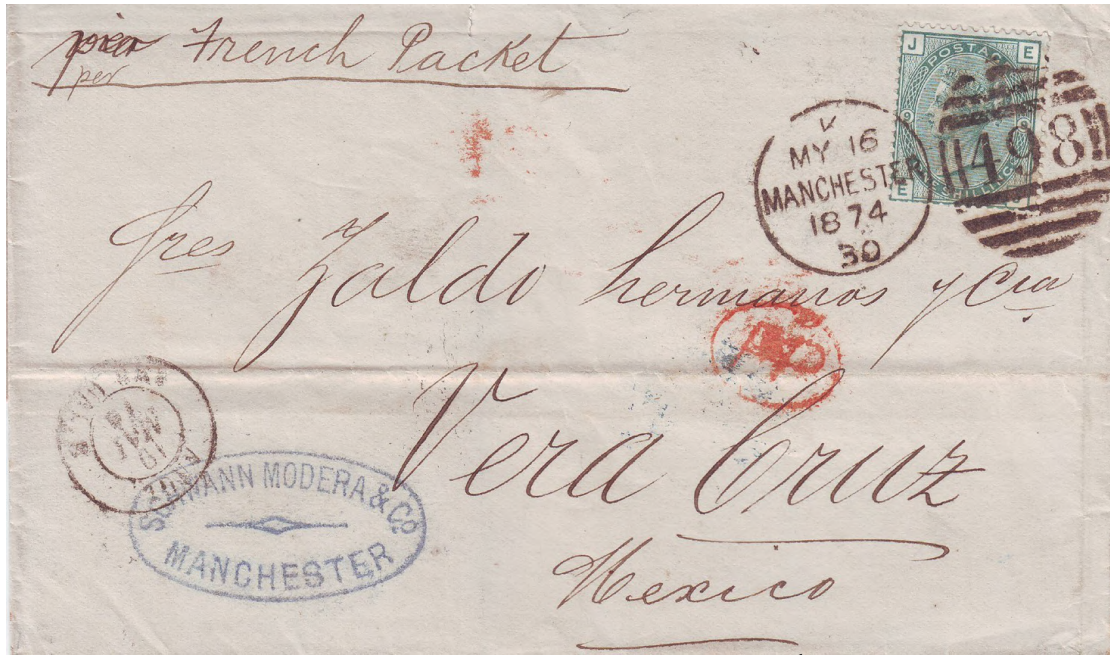 per French Packet
per
J E
POSTAGE
E SHILLING
V
MY 16
MANCHESTER
1874
30
498
Sres Zaldo hermanos y Cia
Vera Cruz
Mexico
MAI
SCHWANN MODERA & CO
MANCHESTER